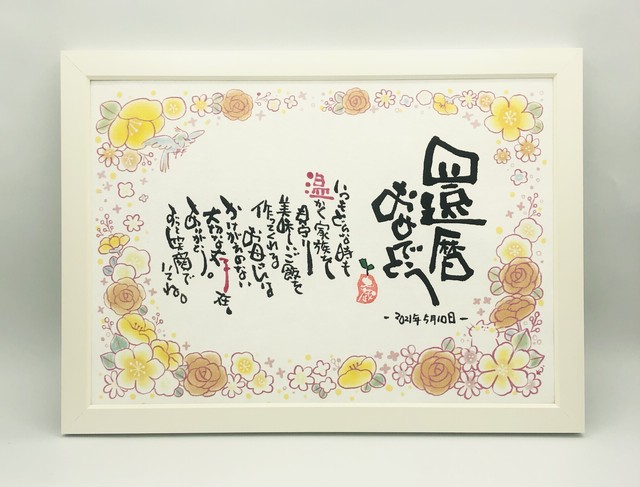 還暦
おめでとう
-2021年5月10日-
いつもどんな時も
温かく家族を
見守り
美味しいご飯を
作ってくれる
お母さんは
かけがえのない
大切な存在。
ありがとう。
ずっと笑顔で
いてね。